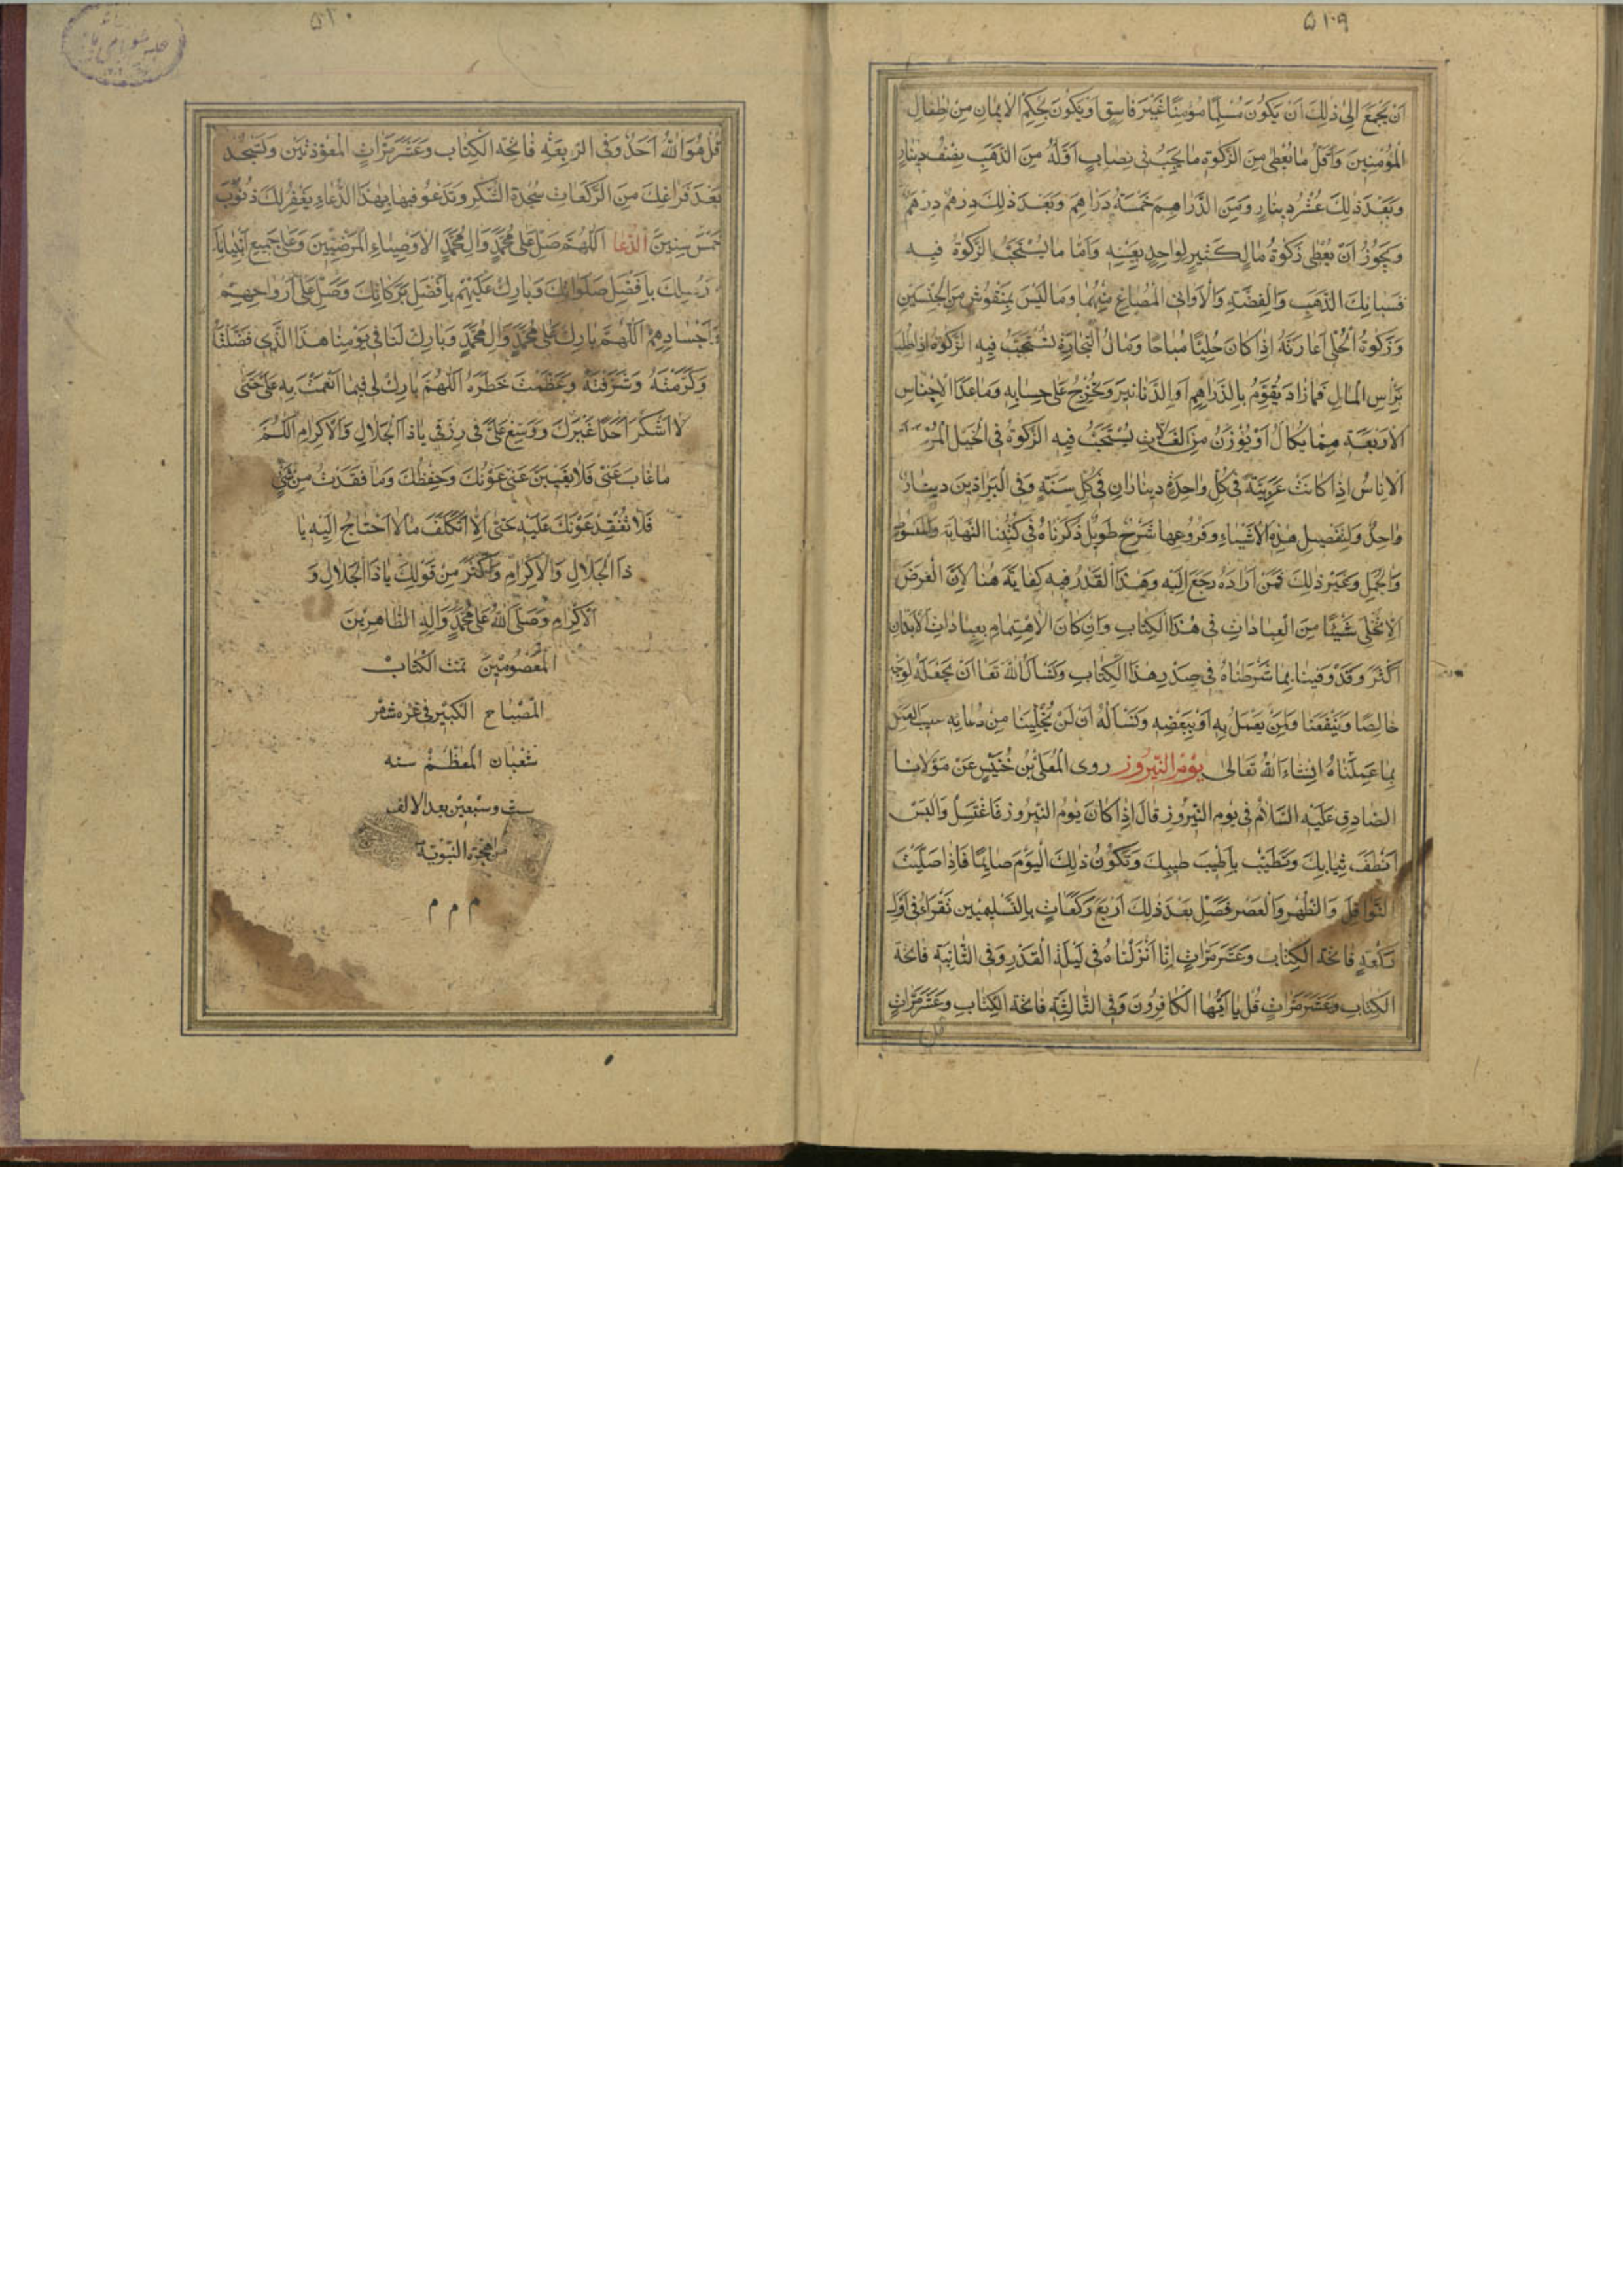 ۵۱۹
ان يجمع الى ذلك ان يكون مسلما مؤمنا غير فاسق او يكون بحكم الايمان من اطفال
المؤمنين واقل ما يعطى من الزكوة ما يجب فى نصاب اقله من الذهب نصف دينار
وبعد ذلك عشر دينار ومن الدراهم خمسة دراهم وبعد ذلك درهم درهم
ويجوز ان يعطى زكوة مال كثير لواحد بعينه واما ما يستحب الزكوة فيه
فسبائك الذهب والفضة والاوانى المصاغ منهما وما ليس بمنقوش من الجنسين
وزكوة الحلى اعارته اذا كان حليا مباحا ومال التجارة تستحب فيه الزكوة اذا طلب
براس المال فما زاد يقوم بالدراهم او الدنانير ويخرج على حسابه وما عدا الاجناس
الاربعة مما يكال او يوزن من يستحب فيه الزكوة فى الخيل
الاناس اذا كانت عربية فى كل واحدة ديناران فى كل سنة وفى البراذين دينار
واحد ولتفصيل هذه الاشياء وفروعها شرح طويل ذكرناه فى كتبنا النهاية والمبسوط
والجمل وغير ذلك فمن اراده رجع اليه وهذا القدر فيه كفاية هنا لان الغرض
الا نخلى شيئا من العبادات فى هذا الكتاب وان كان الاهتمام بعبادات الابدان
اكثر وقد وفينا بما شرطناه فى صدر هذا الكتاب ونسال الله تعا ان يجعله لوجه
خالصا وينفعنا ومن يعمل به او ببعضه ونساله ان لن يخلينا من دعائه
بما عملناه انشاء الله تعالى يوم النيروز روى المعلى بن خنيس عن مولانا
الصادق عليه السلام فى يوم النيروز قال اذا كان يوم النيروز فاغتسل والبس
انظف ثيابك وتطيب باطيب طيبك وتكون ذلك اليوم صائما فاذا صليت
النوافل والظهر والعصر فصل بعد ذلك اربع ركعات بالتسليمين تقراء فى اول
ركعة فاتحة الكتاب وعشر مرات انا انزلناه فى ليلة القدر وفى الثانية فاتحة
الكتاب وعشر مرات قل يا ايها الكافرون وفى الثالثة فاتحة الكتاب وعشر مرات
۵۲۰
قل هو الله احد وفى الربعة فاتحة الكتاب وعشر مرات المعوذتين وتسجد
بعد فراغك من الركعات سجدة الشكر وتدعو فيها بهذا الدعاء يغفر لك ذنوب
خمس سنين الدعا اللهم صل على محمد وال محمد الاوصياء المرضيين وعلى جميع
رسلك بافضل صلواتك وبارك عليهم بافضل بركاتك وصل على ارواحهم
واجسادهم اللهم بارك على محمد وال محمد وبارك لنا فى يومنا هذا الذى فضلته
وكرمته وشرفته وعظمت خطره اللهم بارك لى فيما انعمت به على حتى
لا اشكر احدا غيرك ووسع على فى رزقى يا ذا الجلال والاكرام اللهم
ما غاب عنى فلا يغيبن عنى عونك وحفظك وما فقدت من شئ
فلا تفقد عونك عليه حتى الا اتكلف ما لا احتاج اليه يا
ذا الجلال والاكرام واكثر من قولك يا ذا الجلال و
الاكرام وصلى الله على محمد واله الطاهرين
المعصومين تمت الكتاب
المصباح الكبير فى غره شهر
شعبان المعظم سنه
ست وسبعين بعد الالف
من هجرة النبوية
م م م